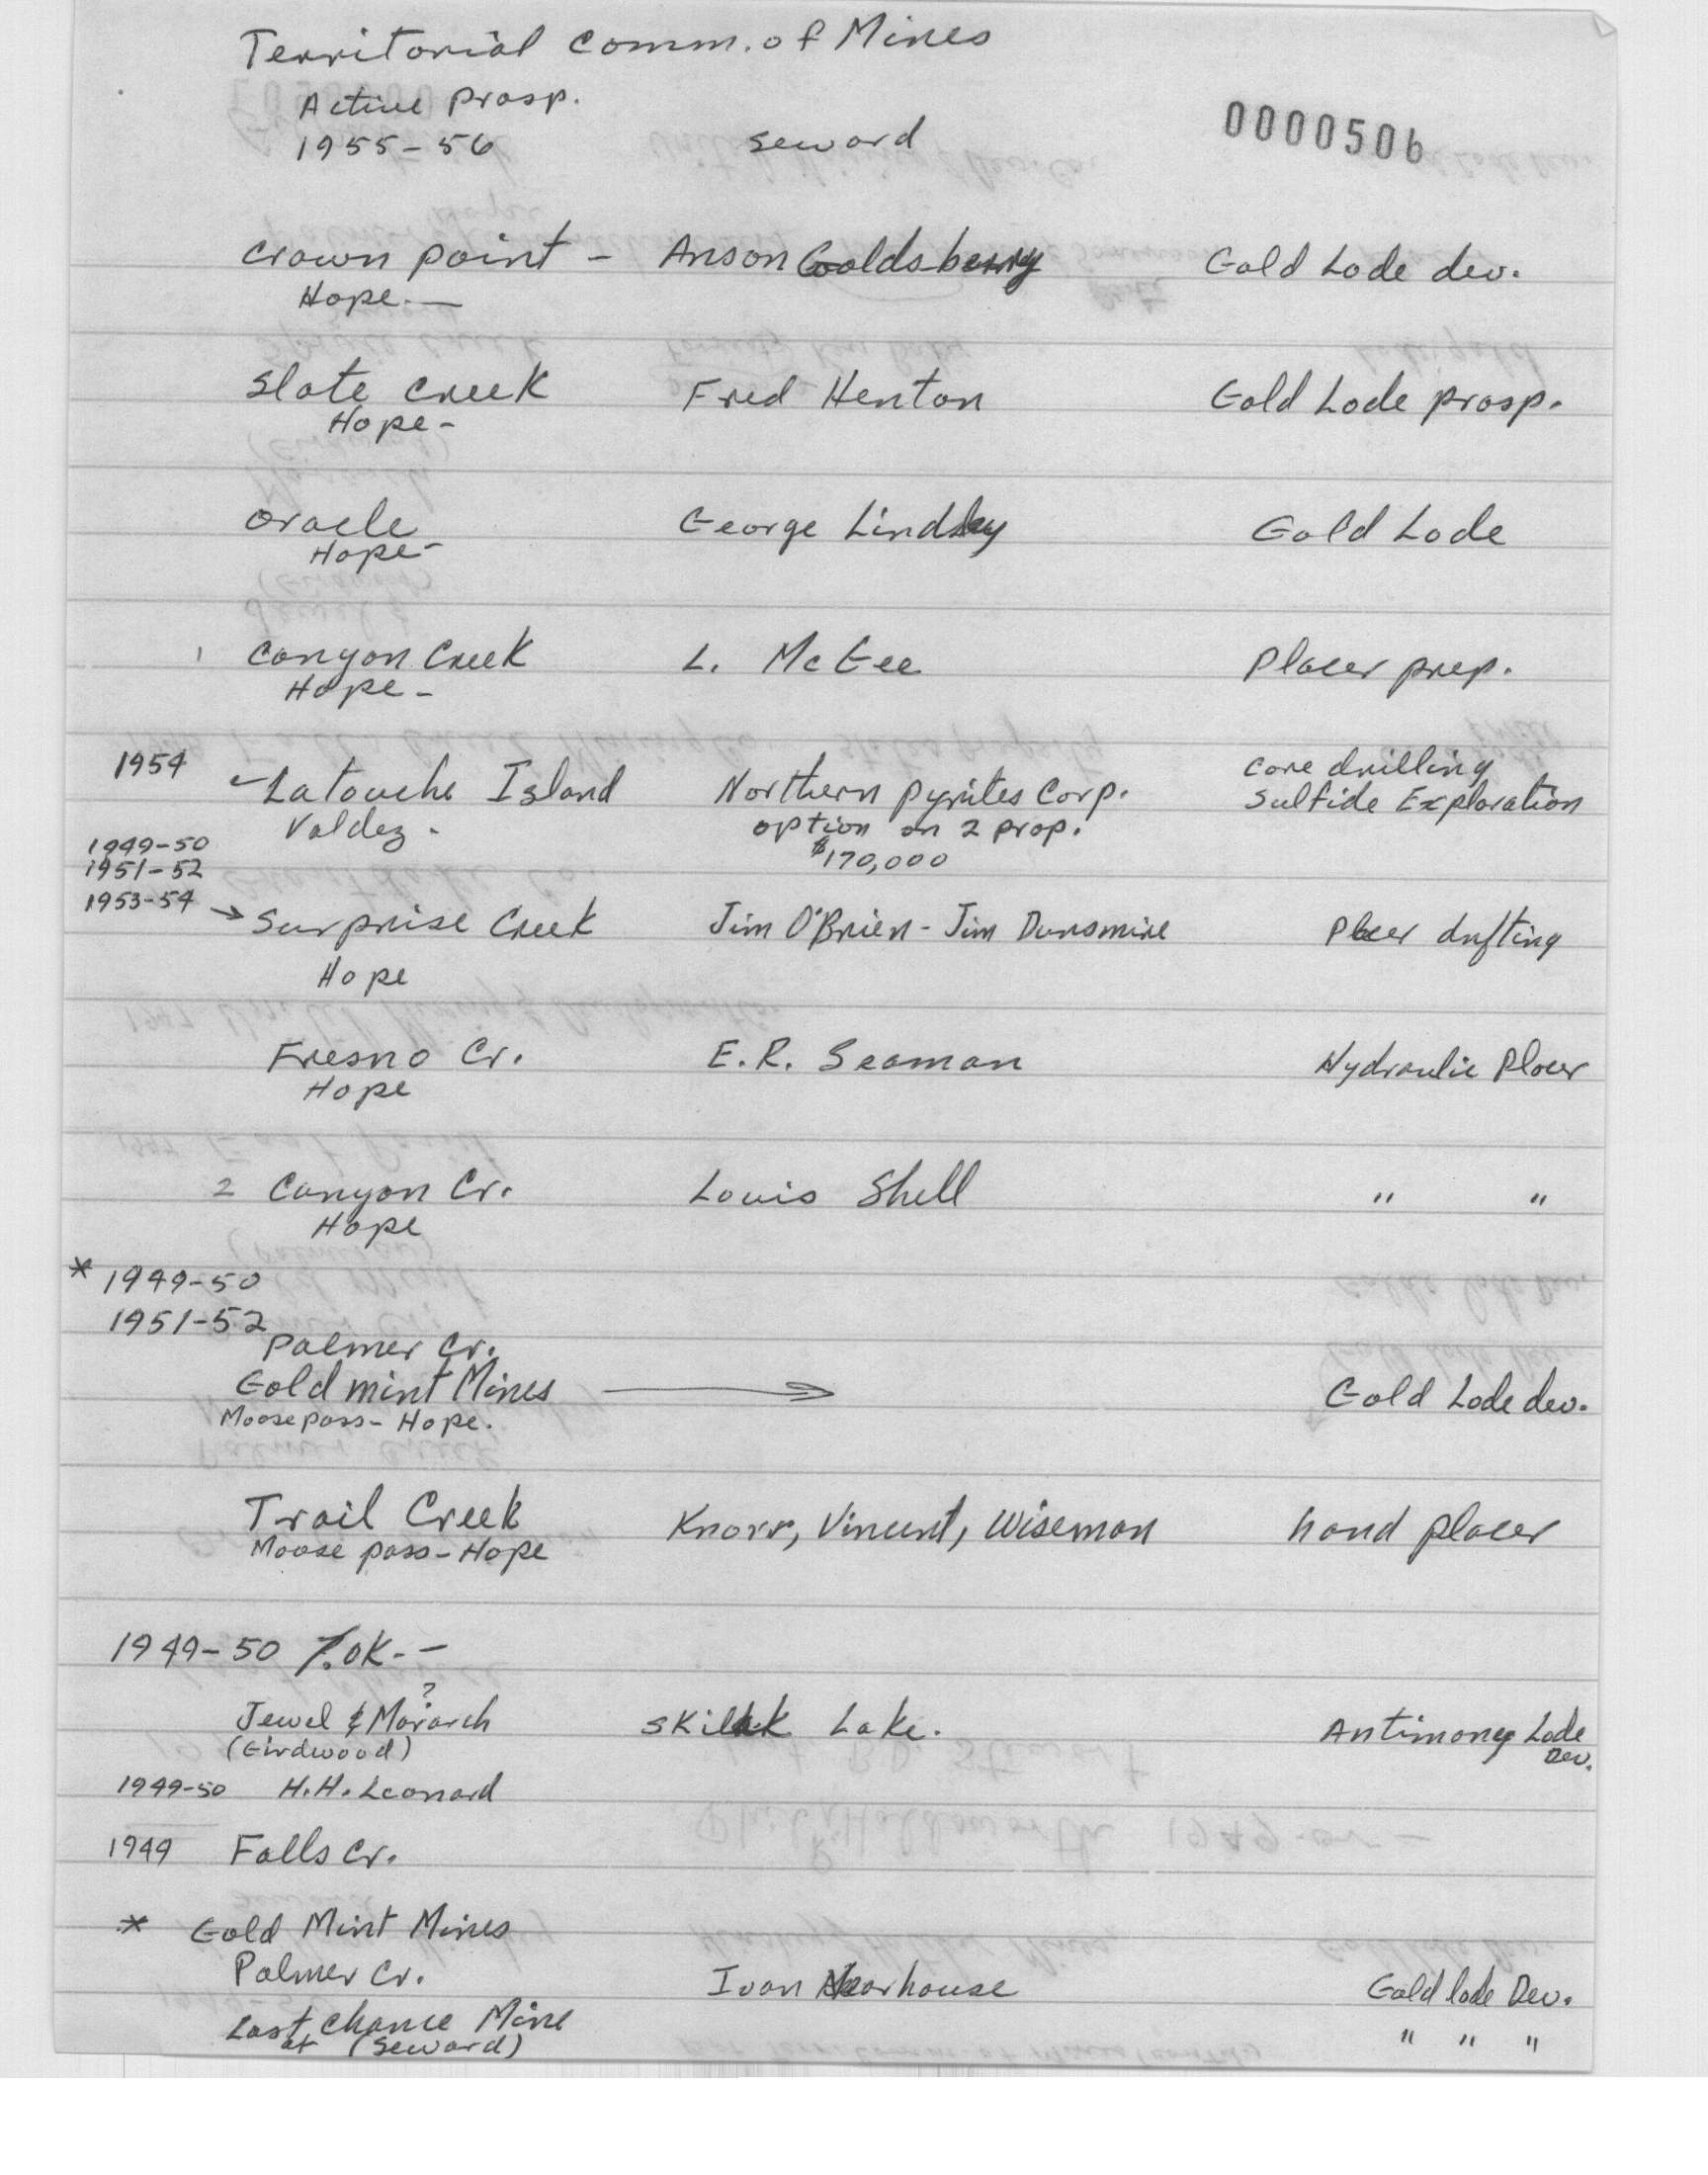 Territorial Comm. of Mines
Active Prosp.
1955-56 Seward 0000506
Crown point - Anson Goldsberry Gold Lode dev.
Hope. —
Slate Creek Fred Henton Gold Lode prosp.
Hope -
Oracle George Lindsey Gold Lode
Hope -
1 Canyon Creek L. McGee Placer prep.
Hope -
1954 Latouche Island Northern Pyrites Corp. Core drilling
Sulfide Exploration
Valdez. option on 2 prop.
$170,000
1949-50
1951-52
1953-54 → Surprise Creek Jim O'Brien - Jim Dunsmire Placer drifting
Hope
Fresno Cr. E.R. Seaman Hydraulic Placer
Hope
2 Canyon Cr. Louis Shell " "
Hope
* 1949-50
1951-52
Palmer Cr.
Gold mint Mines → Gold Lode dev.
Moose pass - Hope.
Trail Creek Knorr, Vincent, Wiseman hand placer
Moose pass - Hope
1949-50 OK. -
?
Jewel & Monarch Skilak Lake. Antimony Lode
Dev.
(Girdwood)
1949-50 H.H. Leonard
1949 Falls Cr.
* Gold Mint Mines
Palmer Cr. Ivan Gold lode Dev.
Last Chance Mine " " "
at (Seward)